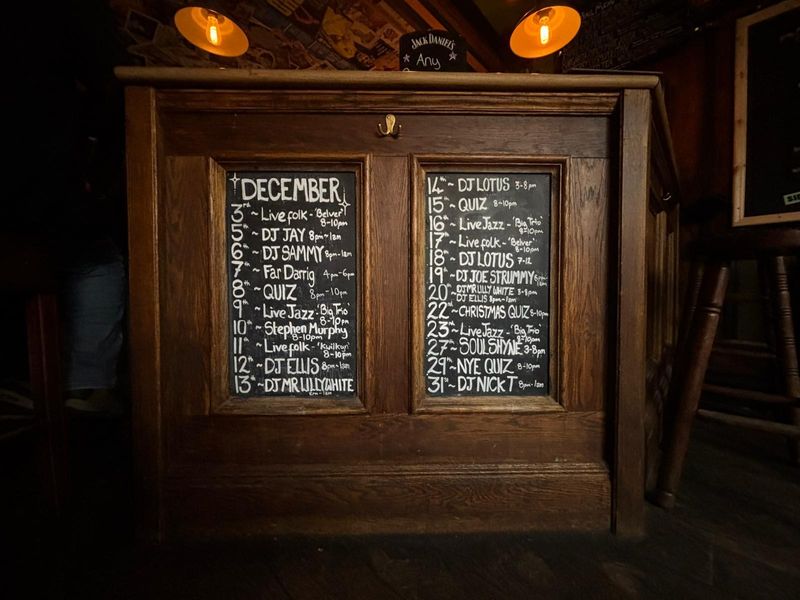 JACK DANIEL'S
Any
DECEMBER
3rd ~ Live folk - 'Belver'
8-10pm
5th ~ DJ JAY 8pm-1am
6th ~ DJ SAMMY 8pm-1am
7th ~ Far Darrig 4pm-6pm
8th ~ QUIZ 8pm-10pm
9th ~ Live Jazz - 'Big Trio'
8-10pm
10th ~ Stephen Murphy
8-10pm
11th ~ Live folk - 'Kwilkun'
8-10pm
12th ~ DJ ELLIS 8pm-1am
13th ~ DJ MR ULLY WHITE
6pm-1am
14th ~ DJ LOTUS 3-8pm
15th ~ QUIZ 8-10pm
16th ~ Live Jazz - 'Big Trio'
8-10pm
17th ~ Live folk - 'Belver'
8-10pm
18th ~ DJ LOTUS 7-12
19th ~ DJ JOE STRUMMY 8pm-1am
20th ~ DJ MR ULLY WHITE 3-8pm
DJ ELLIS 8pm-1am
22nd ~ CHRISTMAS QUIZ 8-10pm
23rd ~ Live Jazz - 'Big Trio'
8-10pm
27th ~ SOULSHYNE 3-8pm
29th ~ NYE QUIZ 8-10pm
31st ~ DJ NICK T 8pm-1am